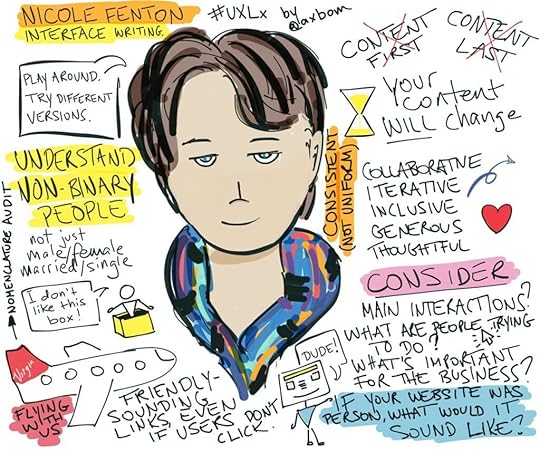 NICOLE FENTON
INTERFACE WRITING.
#UXLx by
@axbom
CONTENT
FIRST
CONTENT
LAST
PLAY AROUND.
TRY DIFFERENT
VERSIONS.
Your
content
WILL change
UNDERSTAND
NON-BINARY
PEOPLE
not just
male/female
married/single
NOMENCLATURE AUDIT
CONSISTENT
(NOT UNIFORM)
COLLABORATIVE
ITERATIVE
INCLUSIVE
GENEROUS
THOUGHTFUL
I don't
like this
box!
CONSIDER
MAIN INTERACTIONS?
WHAT ARE PEOPLE TRYING
TO DO?
WHAT'S IMPORTANT
FOR THE BUSINESS?
Virgin
FLYING
WITH
US
FRIENDLY-
SOUNDING
LINKS, EVEN
IF USERS DON'T
CLICK.
DUDE!
IF YOUR WEBSITE WAS
PERSON, WHAT WOULD IT
SOUND LIKE?